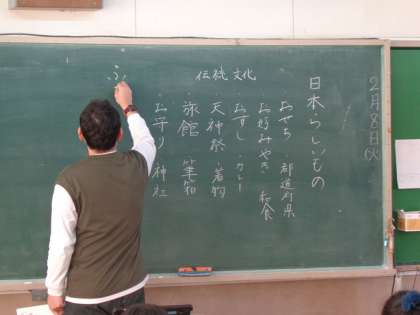 2月8日(火)
日本らしいもの
伝統文化
おせち 都道府県
お好みやき 和食
・おすし・カレー
・天神祭・着物
・旅館 筆箱
・お守り 神社
ふ